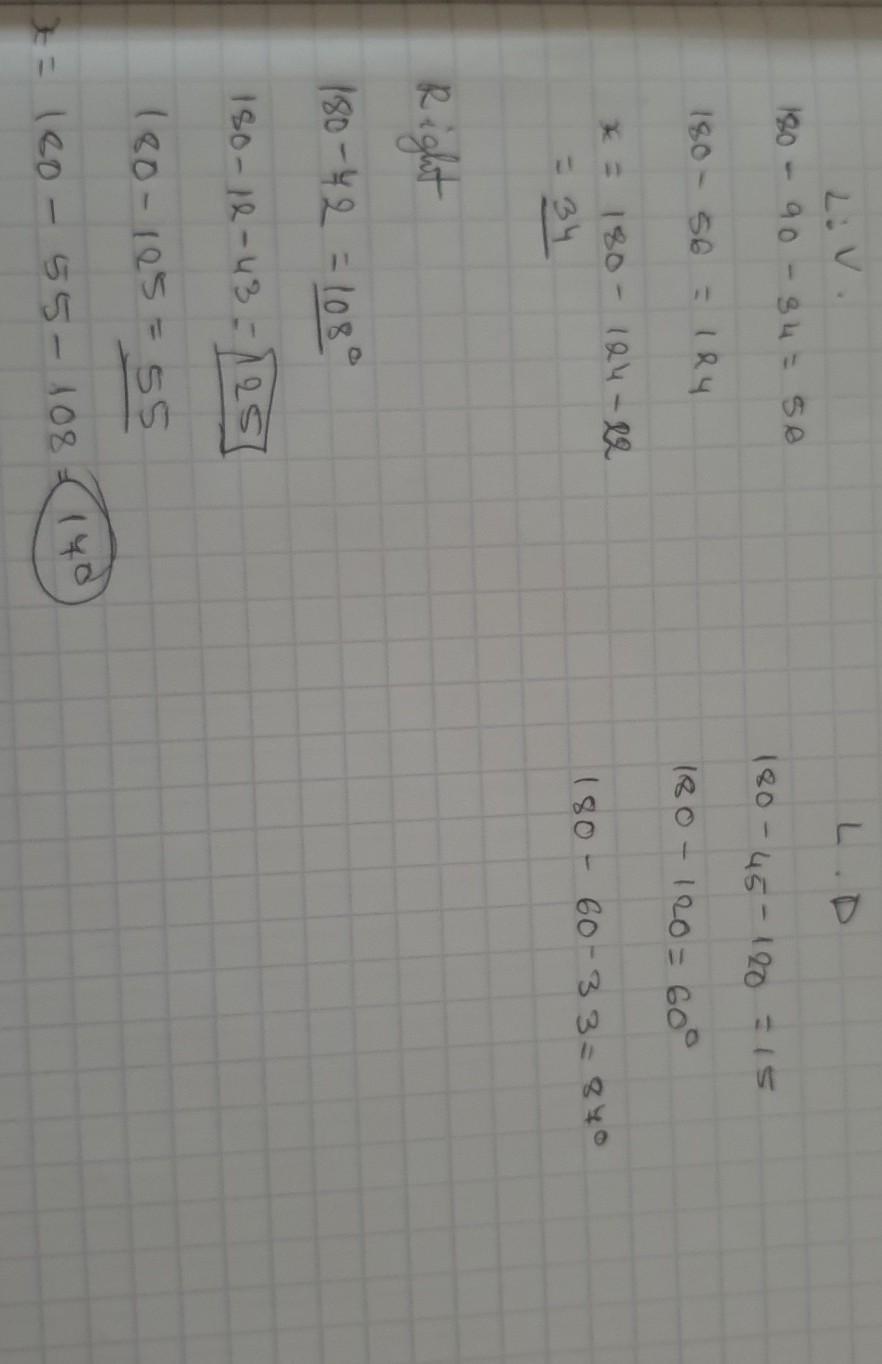 L:V.
180 - 90 - 34 = 56
180 - 56 = 124
x = 180 - 124 - 22
= 34
L.D
180 - 45 - 120 = 15
180 - 120 = 60°
180 - 60 - 33 = 87°
Right
180 - 72 = 108°
180 - 12 - 43 = 125
180 - 125 = 55
x = 180 - 55 - 108 = 17°